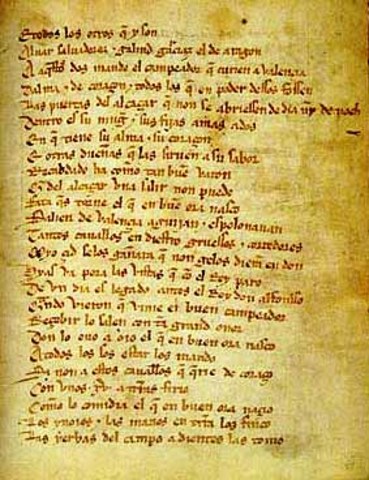 E todos los otros q̃ y son
Aluar saluadorez ⁊ galind garciaz el de aragon
A aq̃stos dos mando el campeador q̃ curien a valencia
Dalma ⁊ de coraçon ⁊ todos los q̃ en poder dessos fossen
Las puertas del alcaçar q̃ non se abriessen de dia nỹ de noch
Dentro es su mugĩer ⁊ sus fijas amas ados
En q̃ tiene su alma ⁊ su coraçon
E otras dueñas q̃ las siruen a su sabor
Recabdado ha como tan buẽ varon
Q̃ del alcaçar vna salir non puede
Fata q̃s torne el q̃ en buẽ ora nasco
Salien de valencia aguijan ⁊ espolonauan
Tantos cauallos en diestro gruessos ⁊ corredores
Myo çid selos gañara q̃ non gelos dierã en don
Hyas va pora las vistas q̃ cõ el Rey paro
De vn dia es legado antes el Rey don alfonsso
Q̃ndo vieron q̃ vinie el buen campeador
Reçebir lo salen con tã grand onor
Don lo ouo a oio el q̃ en buen ora nasco
A todos los sos estar los mando
Si non a estos caualłos q̃ q̃rie de coraçõ
Con vnos .xv. a tierras firio
Cõmo lo comidia el q̃ en buen ora naçio
Los ynoios ⁊ las manos en tr̃ra los finco
Las yerbas del campo a dientes las tomo